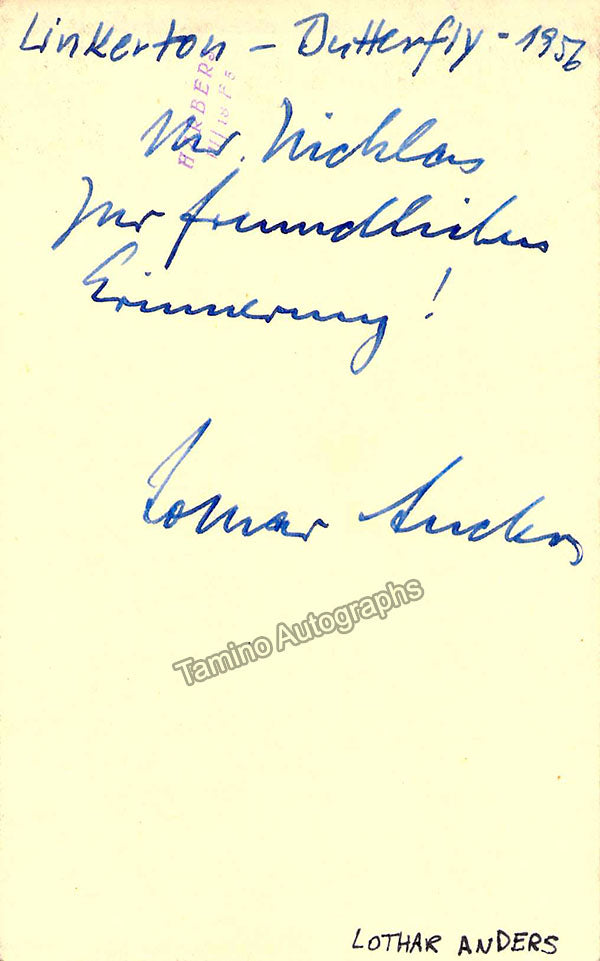 Linkerton – Butterfly - 1956
Mr. Nicklas
zur freundlichen
Erinnerung!
Lothar Anders
Tamino Autographs
LOTHAR ANDERS